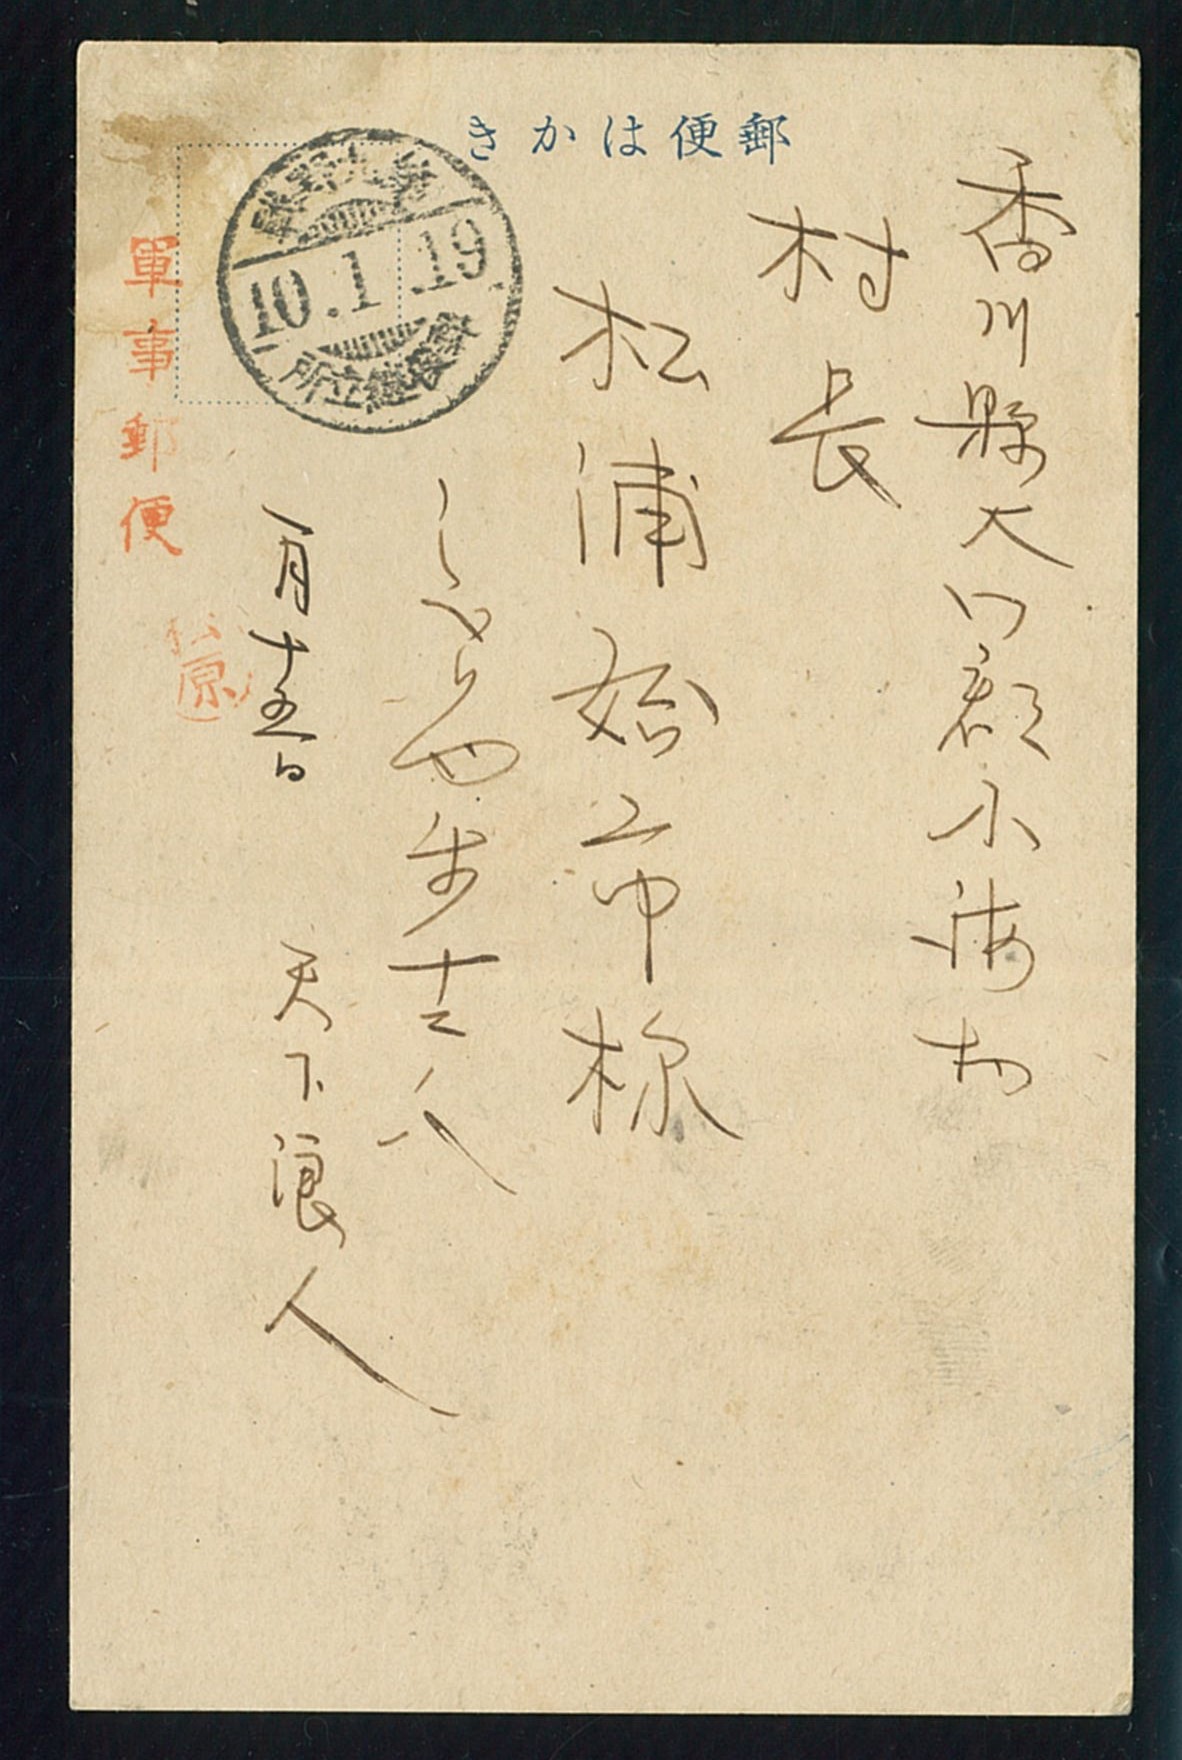 郵便はかき
香川縣大川郡小海村
村長
松浦 始 市 様
歩十二ノ八
一月十五日 天下浪人
軍事郵便
松原
第九野戰
10.1.19
所